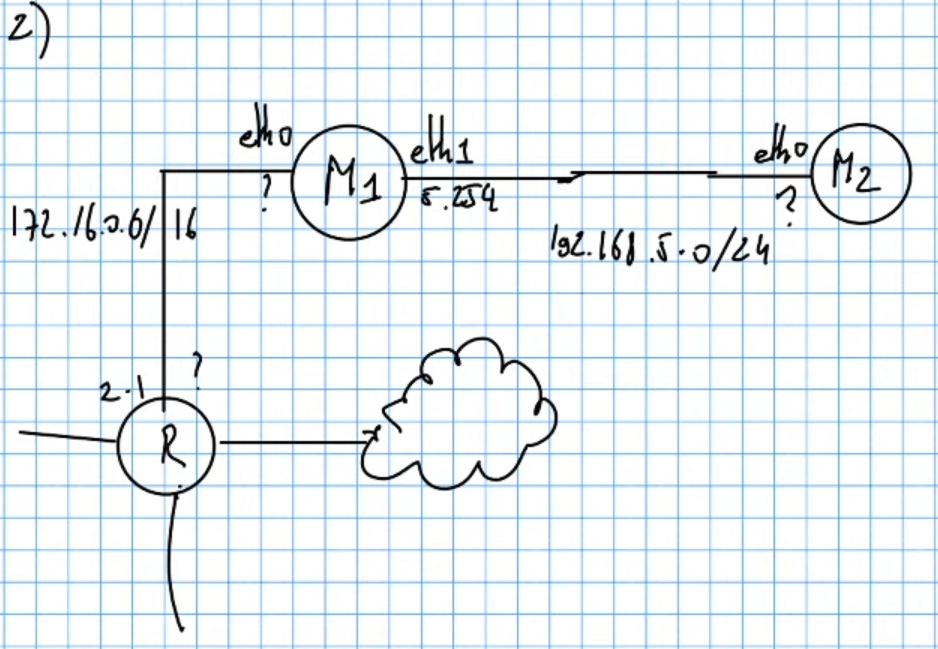 2)
eth0
M1
eth1
eth0
M2
?
5.254
?
172.16.0.0/16
192.168.5.0/24
?
2.1
R